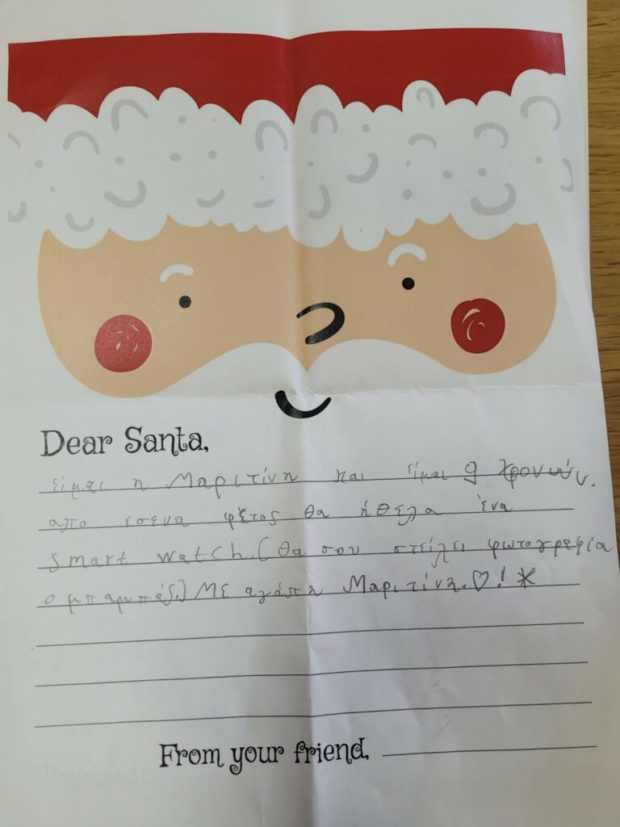 Dear Santa,
είμαι η Μαριτίνη και είμαι 9 χρονών.
απο εσενα φέτος θα ήθελα ένα
smart watch. (θα σου στείλει φωτογρεφία
ο μπαμπάς.) Με αγάπη Μαριτίνη. ♡! *
From your friend,